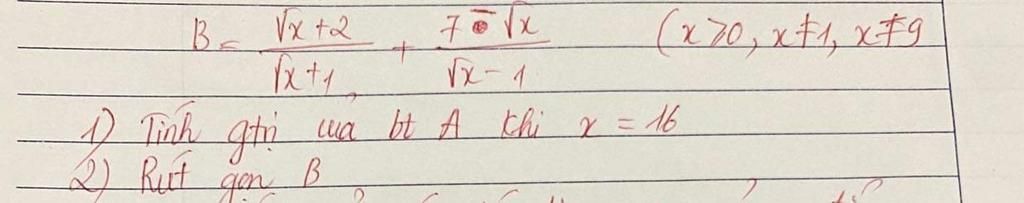 B = \frac{\sqrt{x}+2}{\sqrt{x}+1} + \frac{7-\sqrt{x}}{\sqrt{x}-1} (x>0, x≠1, x≠9
1) Tính gtrị của bt A khi x = 16
2) Rút gọn B